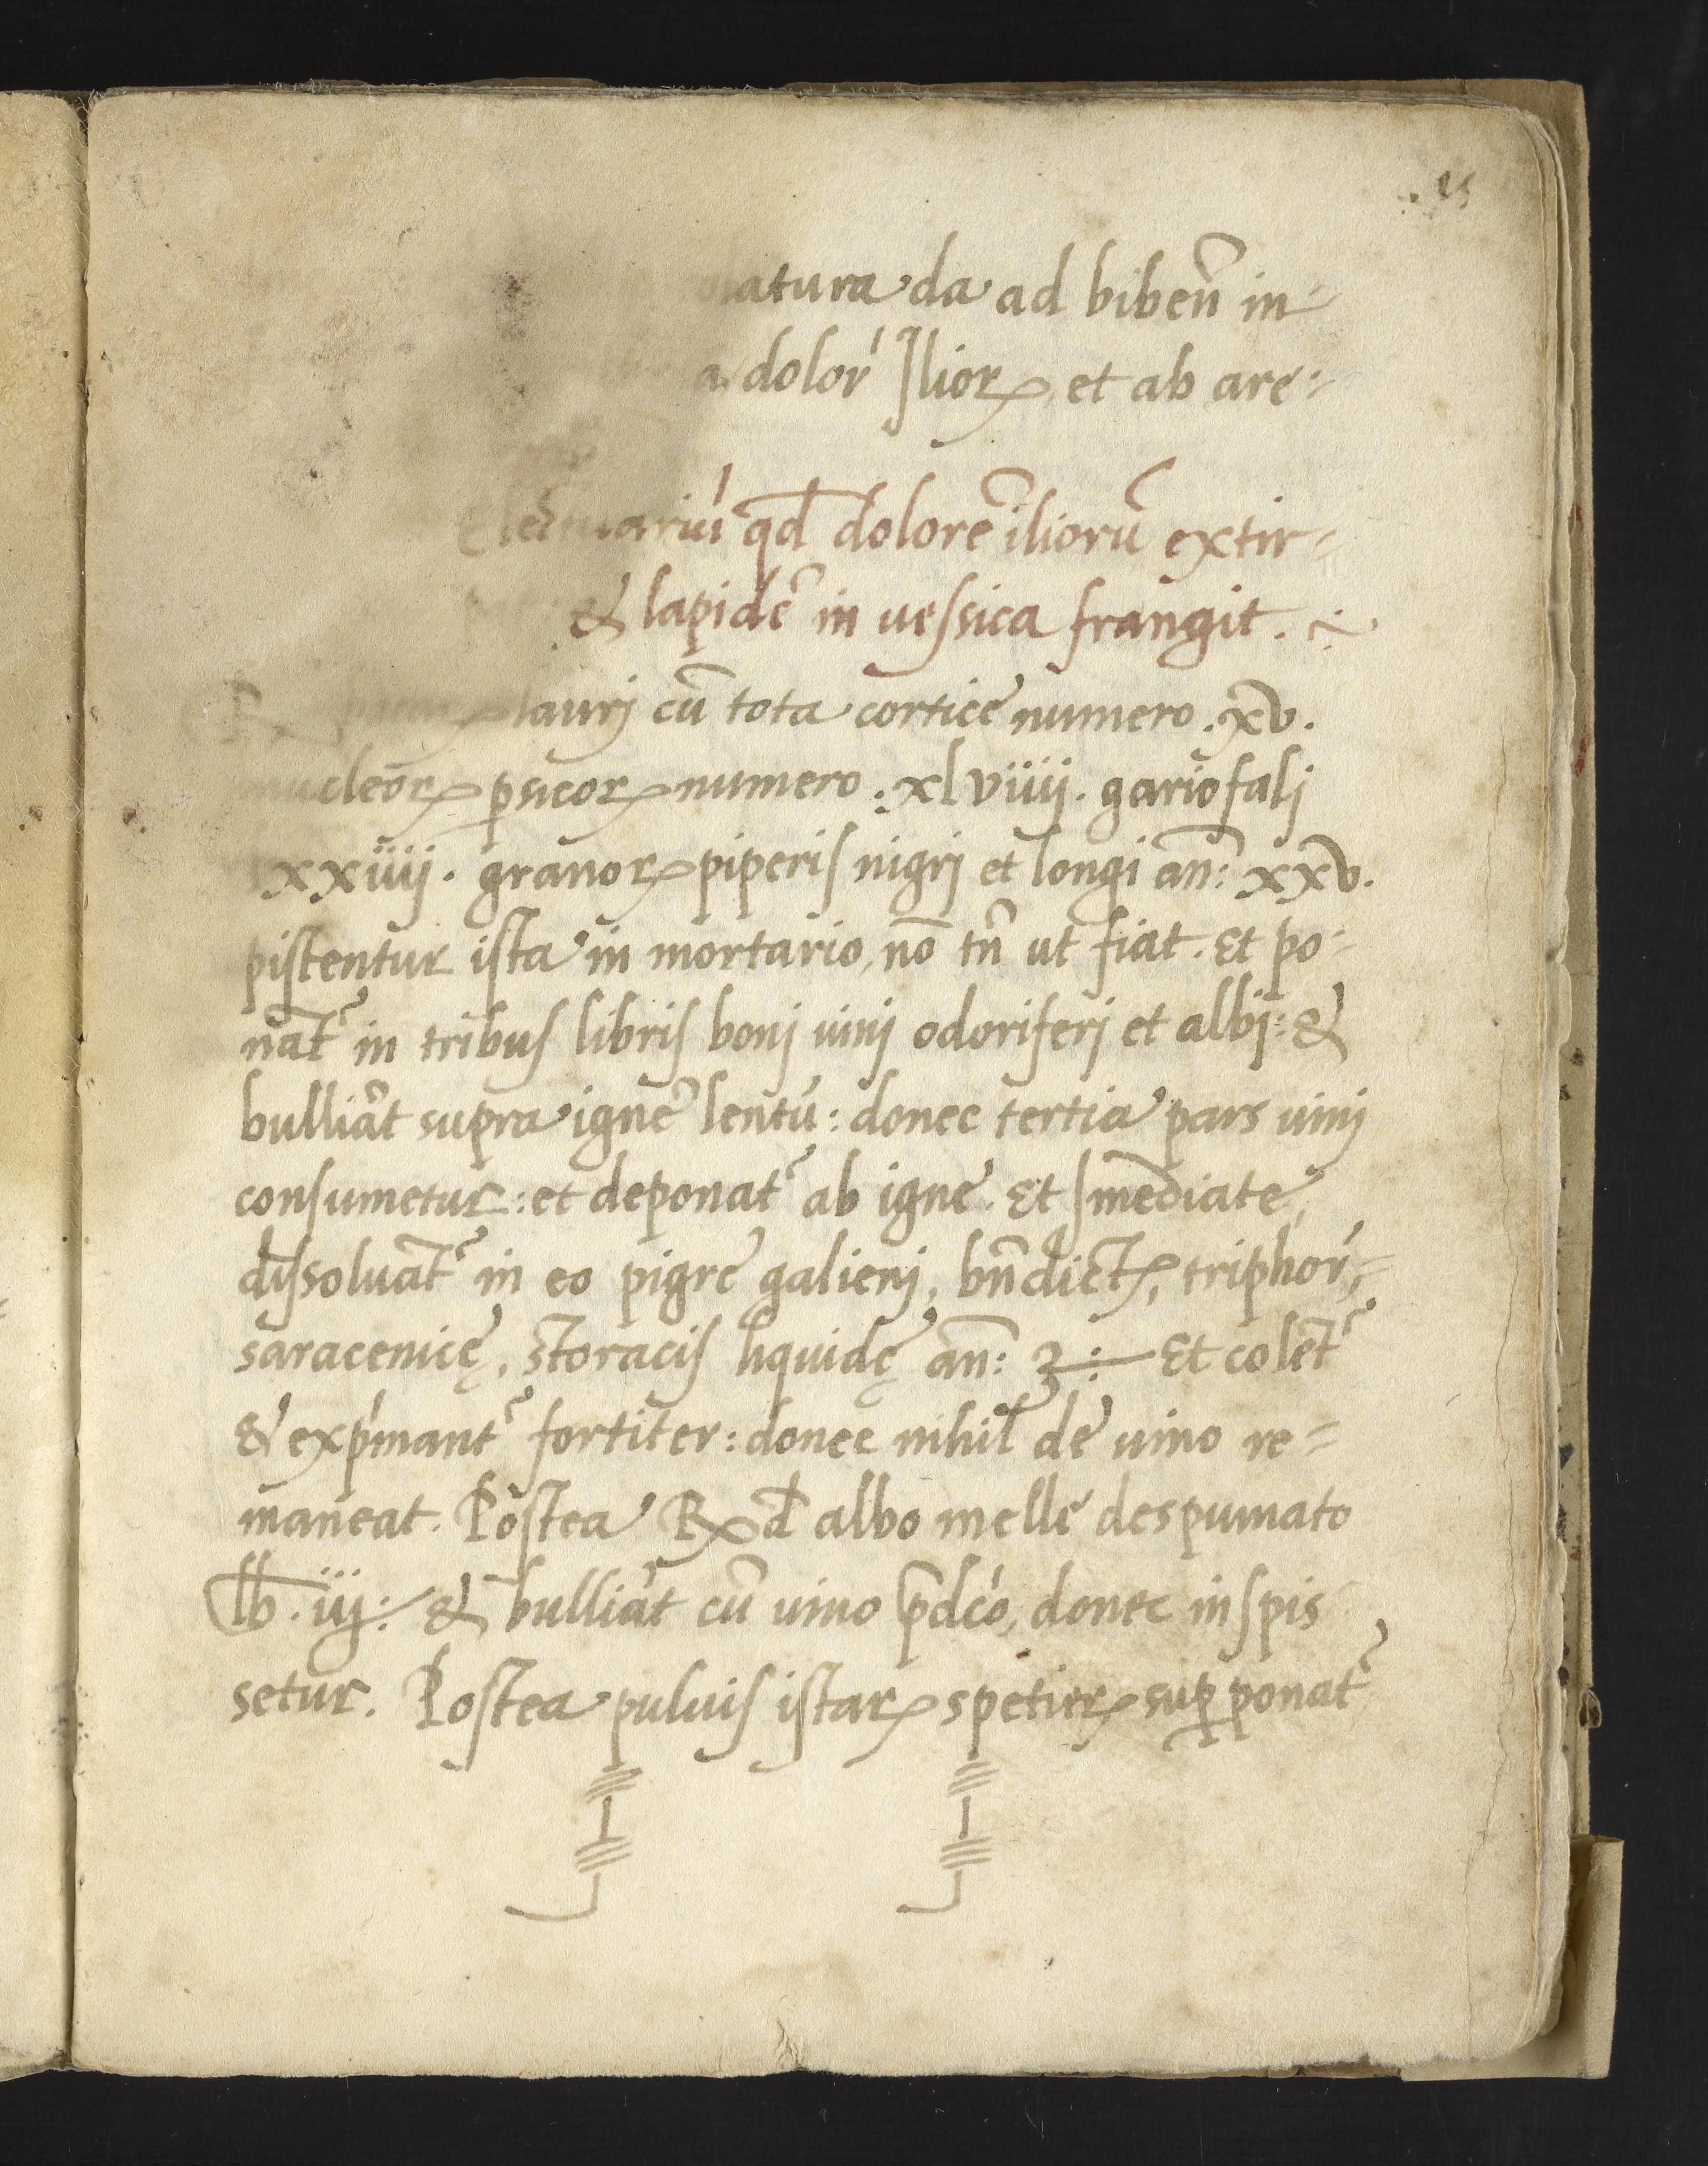 25
atura da ad bibeñ in-
a dolor̃ Iliorꝝ et ab are-
Electuariũ qd̃ dolorẽ iliorũ extir-
& lapidẽ in uessica frangit.
laurj cũ tota cortice numero .xv.
nucleorꝝ ꝑsicorꝝ numero : xlviiij. gariofalj
xxiiij. granorꝝ piperis nigrj et longi añ: xxv.
pistentur ista in mortario, nõ tñ ut fiat. Et po-
nãt᷑ in tribus libris bonj uinj odoriferj et albj: &
bulliãt supra ignẽ lentũ: donec tertia pars uinj
consumetur: et deponat᷑ ab igne. Et Imẽdiate
dissoluãt᷑ in eo pigre galienj, bñdictꝝ, triphor̃,-
saracenicę, storacis liquidę añ: ℥ ÷ Et colẽt᷑
& exp̃mant᷑ fortiter: donec nihil de uino re-
maneat. Postea Rx d̃ albo melle despumato
lb̃. iij: & bulliãt cũ uino p̃dc̃o, donec inspis
setur. Postea puluis istarꝝ spetierꝝ suꝑponat᷑